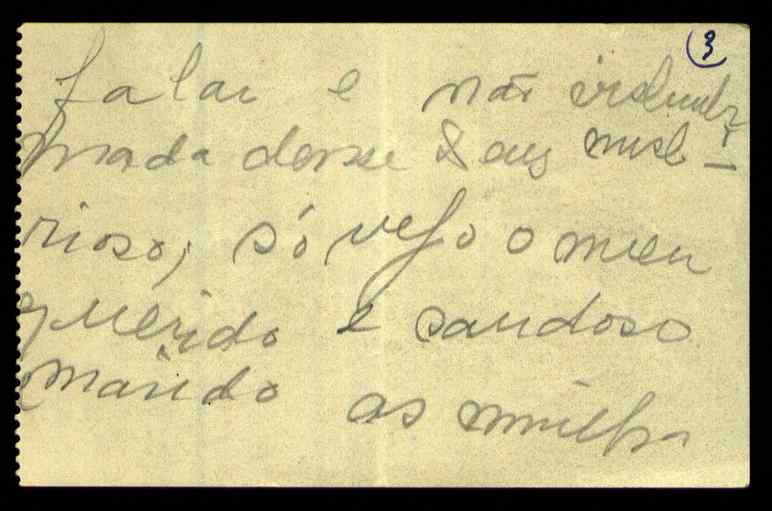 3
falar e não
nada desse Deus miste-
rioso, só vejo o meu
querido e saudoso
marido as minha